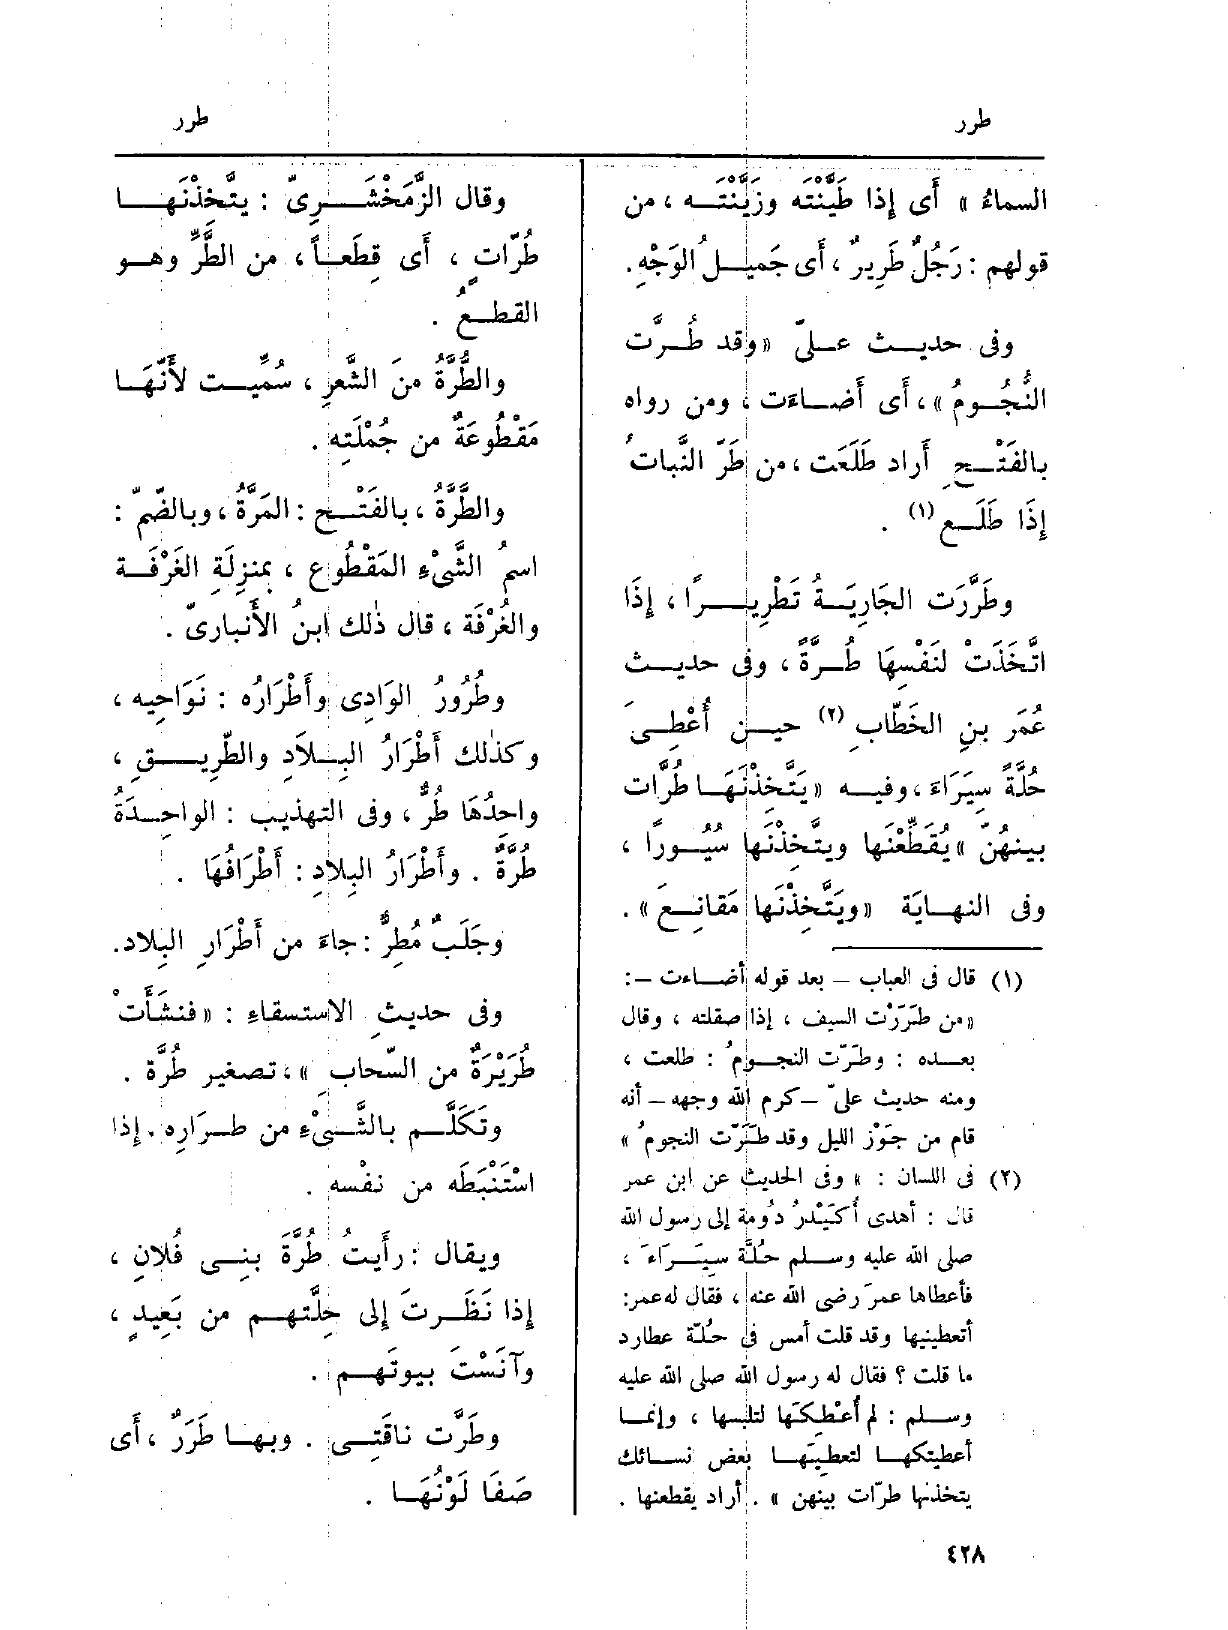 طرر
طرر
السماءُ » أَى إذا طَيَّنْتَه وزَيَّنْتَـه ، من
قولهم : رَجُلٌ طَرِيرٌ ، أَى جَميـلُ الوَجْهِ .
وفى حديـث عـلىّ « وقد طُـرَّت
النُّجُـومُ » ، أَى أَضـاءَت ، ومن رواه
بالفَتْـحِ أَراد طَلَعَت ، من طَرَّ النَّباتُ
إِذَا طَلَـع (١) .
وطَرَّرَت الجَارِيَـةُ تَطْرِيـرًا ، إِذَا
اتَّخَذَتْ لنَفْسِهَا طُـرَّةً ، وفى حديـث
عُمَر بنِ الخَطّابِ (٢) حيـن أُعْطِـىَ
حُلَّةً سِيَرَاءَ ، وفيـه « يَتَّخِذْنَهَـا طُرَّات
بينهُنّ » يُقَطِّعْنَها ويتَّخِذْنَها سُيُـورًا ،
وفى النهـايَة « ويَتَّخِذْنَها مَقانِـعَ » .
(١) قال فى العباب – بعد قوله أضـاءت – :
« من طَرَرْت السيف ، إذا صقلته ، وقال
بعـده : وطَرّت النجـومُ : طلعت ،
ومنه حديث علىّ – كرم الله وجهه – أنه
قام من جَوْز الليل وقد طَرَّت النجومُ »
(٢) فى اللسان : « وفى الحديث عن ابن عمر
قال : أهدى أُكَيْدرُ دُومة إلى رسول الله
صلى الله عليه وسـلم حُلَّة سِيَـرَاءَ ،
فأعطاها عمرَ رضى الله عنه ، فقال له عمر :
أتعطينيها وقد قلت أمس فى حُلّة عطارد
ما قلت ؟ فقال له رسول الله صلى الله عليه
وسـلم : لم أُعْطِكَهَا لتلبسها ، وإنمـا
أعطيتكهـا لتعطيَهـا بعض نسـائك
يتخذنها طرّات بينهن » . أراد يقطعنها .
وقال الزَّمَخْشَـرِىّ : يتَّخِذْنَهَـا
طُرّاتٍ ، أَى قِطَعـاً ، من الطَّرِّ وهـو
القطـعُ .
والطُّرَّةُ مِنَ الشَّعرِ ، سُمِّيـت لأَنّهَـا
مَقْطُوعَةٌ من جُمْلَتِه .
والطَّرَّةُ ، بالفَتْـح : المَرَّةُ ، وبالضّمّ :
اسمُ الشَّىْءِ المَقْطُوعِ ، بمنزِلَةِ الغَرْفَـة
والغُرْفَة ، قال ذٰلك ابنُ الأَنبارىّ .
وطُرُورُ الوَادِى وأَطْرَارُه : نَوَاحِيه ،
وكذٰلك أَطْرَارُ البِـلادِ والطَّرِيـقِ ،
واحِدُهَا طُرٌّ ، وفى التهذيب : الواحِـدَةُ
طُرَّةٌ . وأَطْرَارُ البِلادِ : أَطْرَافُهَا .
وجَلَبٌ مُطِرٌّ : جاءَ من أَطْرَارِ البِلاد .
وفى حديثِ الاستسقاءِ : « فنشَأَتْ
طُرَيْرَةٌ من السَّحاب » ، تصغير طُرَّة .
وتَكَلَّـم بالشَّـىْءِ من طـرَاره . إِذا
اسْتَنْبَطَه من نفْسه .
ويقال : رأَيتُ طُرَّةَ بنِـى فُلانٍ ،
إِذا نَظَـرتَ إلى حِلَّتهـم من بَعِيـدٍ ،
وآنَسْتَ بيوتَهـم .
وطَرَّت ناقَتِـى . وبهـا طَرَرٌ ، أَى
صَفَا لَوْنُهَـا .
٤٢٨